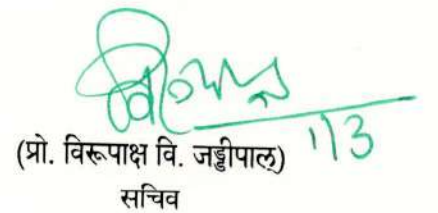 1/3
(प्रो. विरूपाक्ष वि. जड्डीपाल्)
सचिव